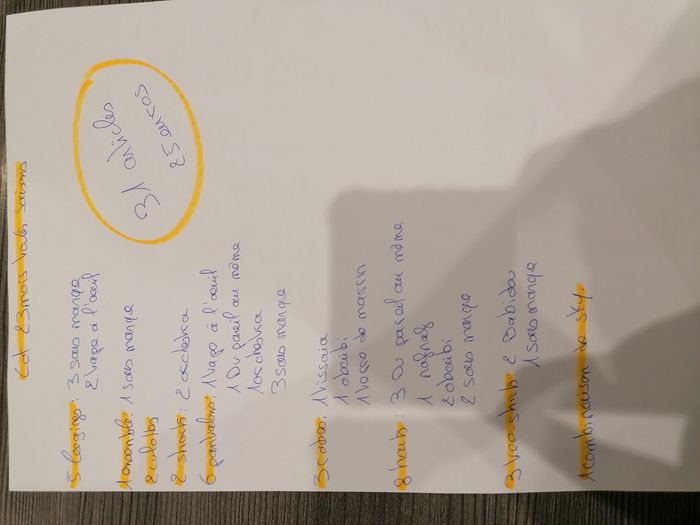 Lot 23 mois toutes saisons
31 articles
25 euros
5 leggings : 3 sans marque
2 vapo à l'oeuil
1 ensemble : 1 sans marque
2 culottes
2 shorts : 2 orchestra
6 pantalons : 1 vapo à l'oeuil
1 Du pareil au même
1 orchestra
3 sans marque
3 robes : 1 kissaia
1 obaibi
1 sans marque
8 hauts : 3 Du pareil au même
1
2 obaibi
2 sans marque
3 tee-shirts : 2 Babidou
1 sans marque
1 combinaison de sky.